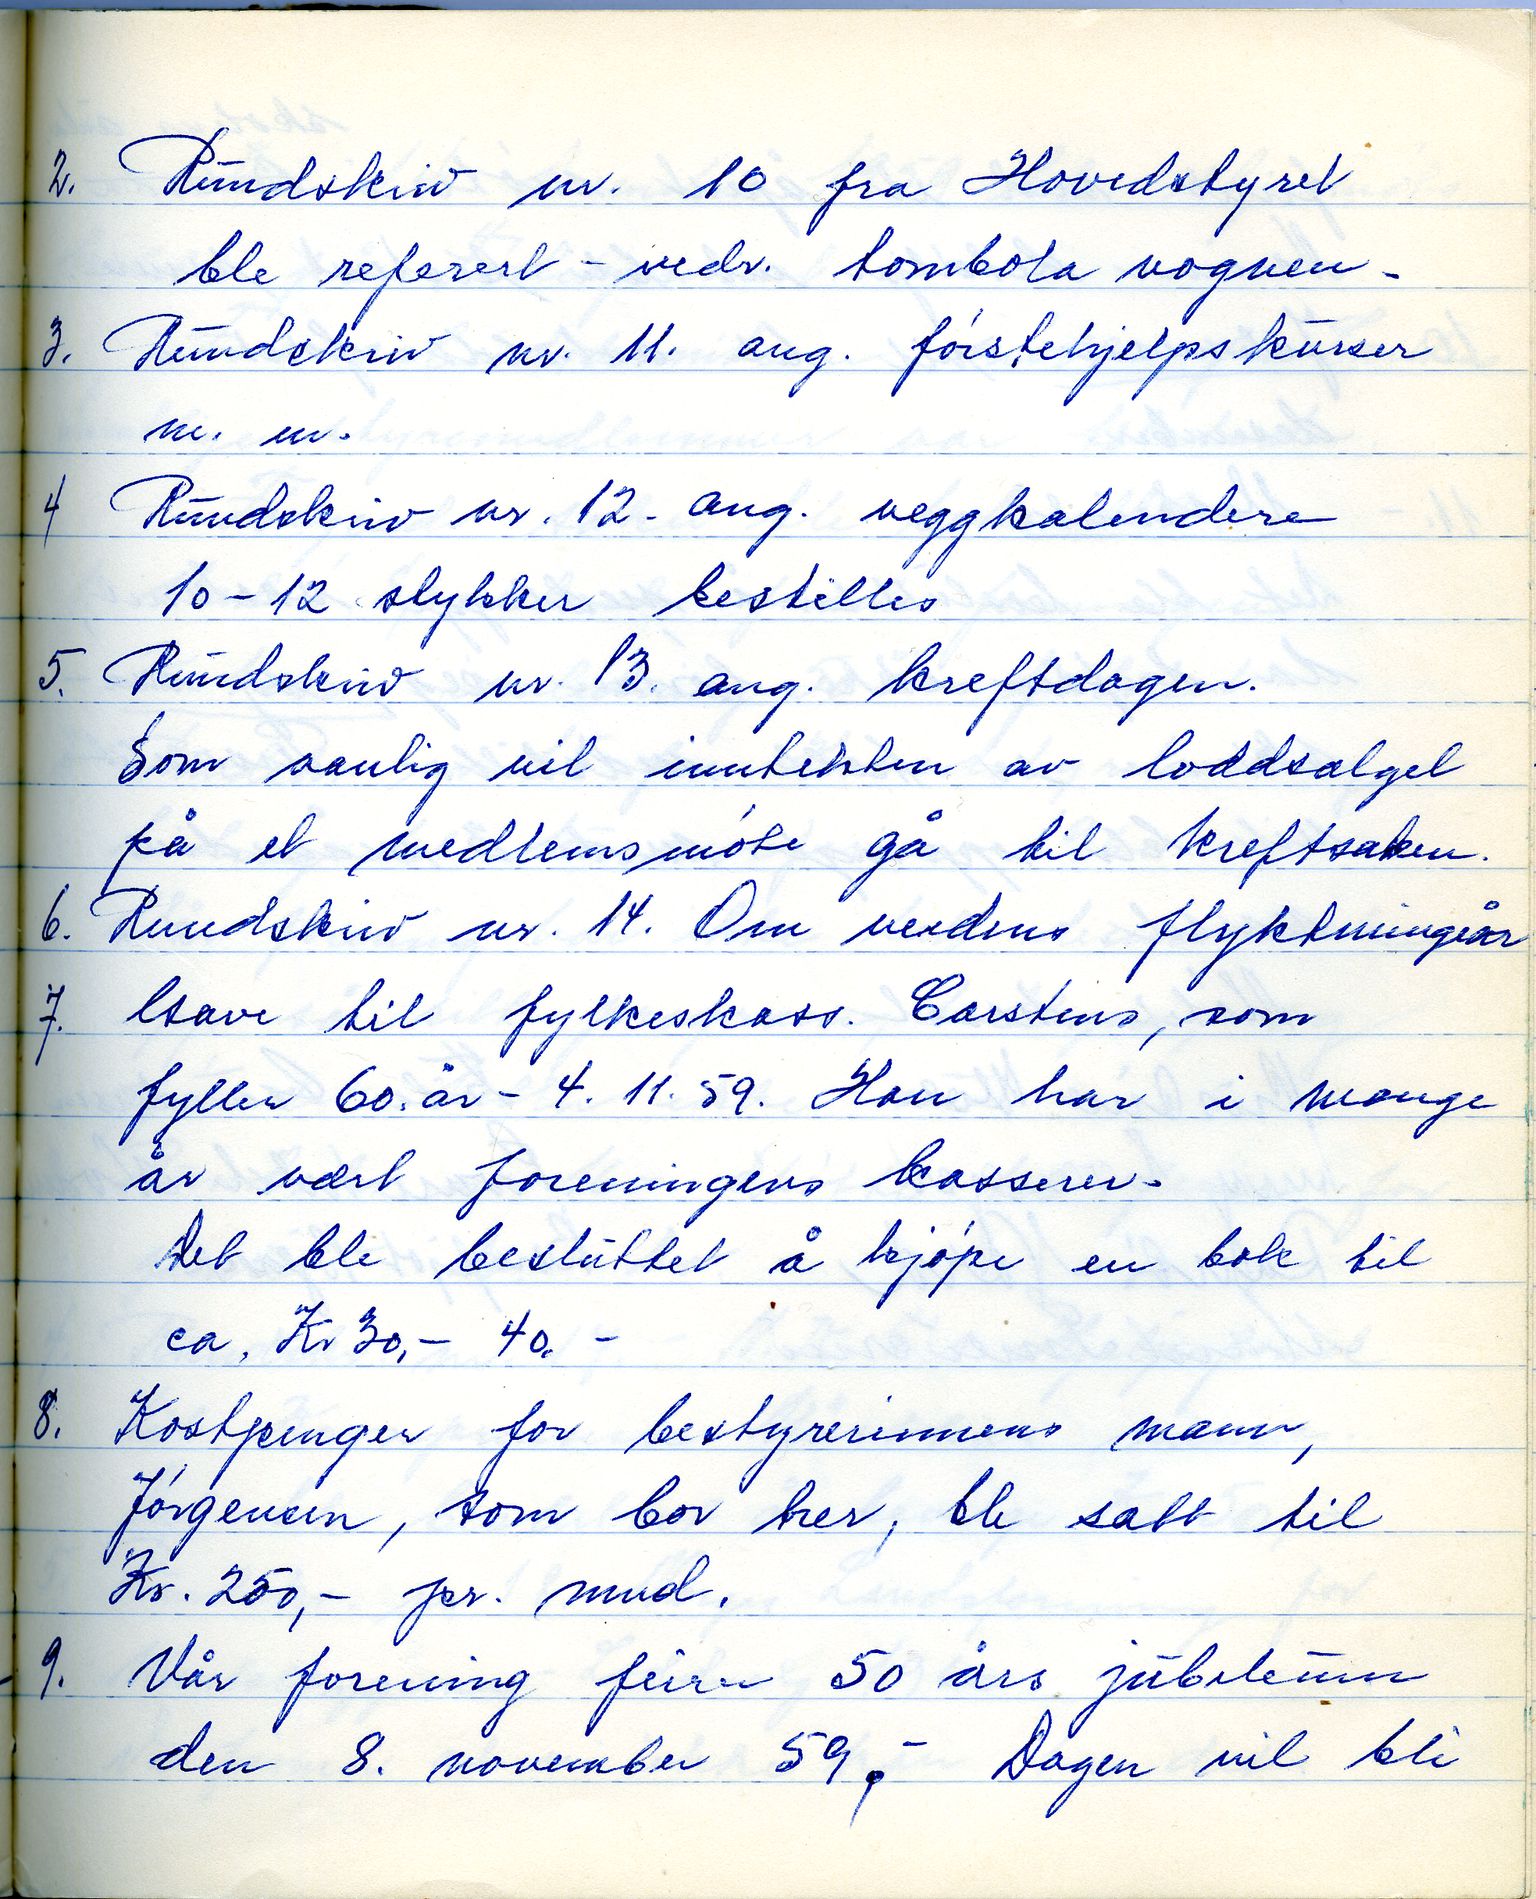 2. Rundskriv nr. 10 fra Hovedstyret
ble referert - vedr. tombola vognen -
3. Rundskriv nr. 11. ang. førstehjelpskurser
m. m.
4 Rundskriv nr. 12. ang. veggkalendere
10-12 stykker bestilles
5. Rundskriv nr. 13. ang. kreftdagen.
Som vanlig vil inntekten av loddsalget
på et medlemsmøte gå til kreftsaken.
6. Rundskriv nr. 14. Om verdens flyktningeår
7. Gave til fylkeskass. Carstens, som
fyller 60. år - 4. 11. 59. Han har i mange
år vært foreningens kasserer.
Det ble besluttet å kjøpe en bok til
ca. Kr 30,- 40.-
8. Kostpenger for bestyrerinnens mann,
Jørgensen, som bor her, ble satt til
Kr. 250,- pr. mnd.
9. Vår forening feirer 50 års jubileum
den 8. november 59,- Dagen vil bli